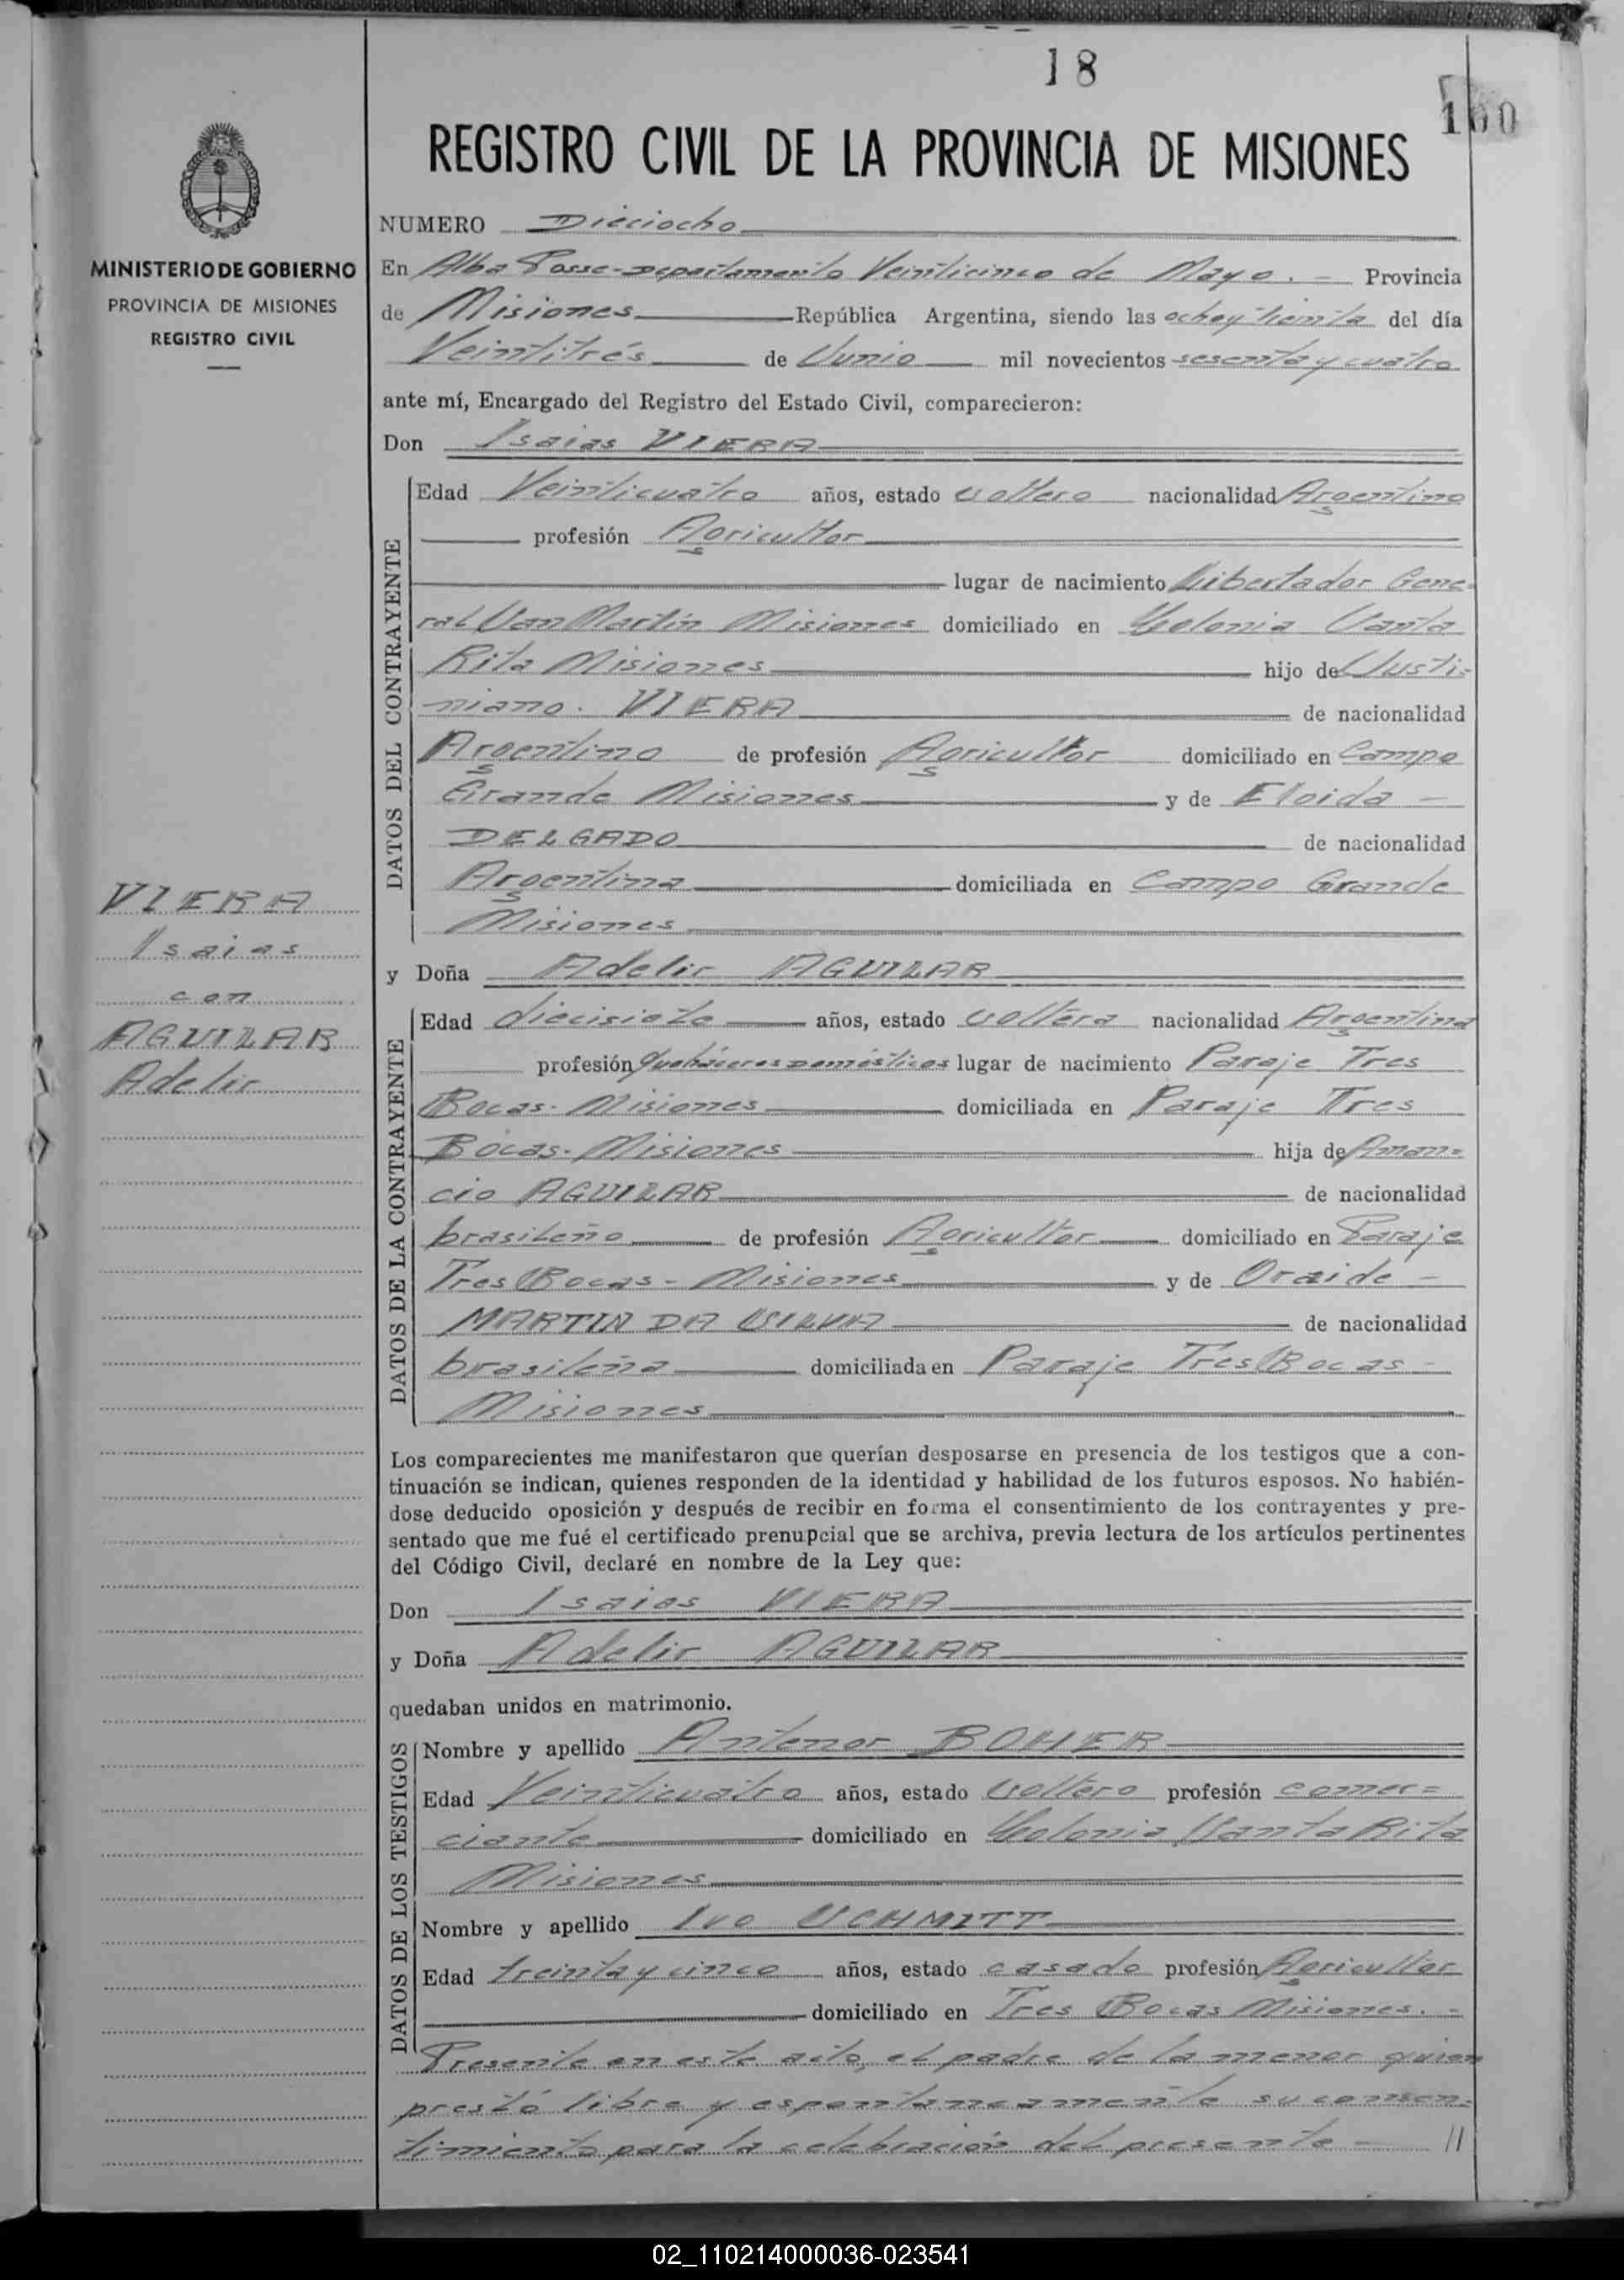 18
160
REGISTRO CIVIL DE LA PROVINCIA DE MISIONES
MINISTERIO DE GOBIERNO
PROVINCIA DE MISIONES
REGISTRO CIVIL
VIERA
Isaias
con
AGUILAR
Adelir
NUMERO Dieciocho
En Alba Posse - Departamento Veinticinco de Mayo. - Provincia
de Misiones República Argentina, siendo las ocho y treinta del día
Veintitrés de Junio mil novecientos sesenta y cuatro
ante mí, Encargado del Registro del Estado Civil, comparecieron:
Don Isaias VIERA
DATOS DEL CONTRAYENTE
Edad Veinticuatro años, estado soltero nacionalidad Argentino
profesión Agricultor
lugar de nacimiento Libertador Gene-
ral San Martín Misiones domiciliado en Colonia Santa
Rita Misiones hijo de Justi-
niano. VIERA de nacionalidad
Argentino de profesión Agricultor domiciliado en Campo
Grande Misiones y de Eloida -
DELGADO de nacionalidad
Argentina domiciliada en Campo Grande
Misiones
y Doña Adelir AGUILAR
DATOS DE LA CONTRAYENTE
Edad diecisiete años, estado soltera nacionalidad Argentina
profesión Quehaceres Domésticos lugar de nacimiento Paraje Tres
Bocas - Misiones domiciliada en Paraje Tres
Bocas - Misiones hija de Aman-
cio AGUILAR de nacionalidad
brasileño de profesión Agricultor domiciliado en Paraje
Tres Bocas - Misiones y de Oraide -
MARTIN DA SILVA de nacionalidad
brasileña domiciliada en Paraje Tres Bocas -
Misiones
Los comparecientes me manifestaron que querían desposarse en presencia de los testigos que a con-
tinuación se indican, quienes responden de la identidad y habilidad de los futuros esposos. No habién-
dose deducido oposición y después de recibir en forma el consentimiento de los contrayentes y pre-
sentado que me fué el certificado prenupcial que se archiva, previa lectura de los artículos pertinentes
del Código Civil, declaré en nombre de la Ley que:
Don Isaias VIERA
y Doña Adelir AGUILAR
quedaban unidos en matrimonio.
DATOS DE LOS TESTIGOS
Nombre y apellido Antenor BOHER
Edad Veinticuatro años, estado soltero profesión comer-
ciante domiciliado en Colonia Santa Rita
Misiones
Nombre y apellido Ivo SCHMITT
Edad treinta y cinco años, estado casado profesión Agricultor
domiciliado en Tres Bocas Misiones. -
Presente en este acto, el padre de la menor quien
prestó libre y espontaneamente su consen-
timiento para la celebración del presente - //
02_110214000036-023541